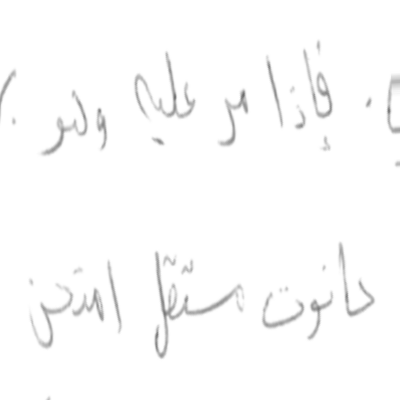 فإذا مر عليه ولو
حانوت مستقل امتحن